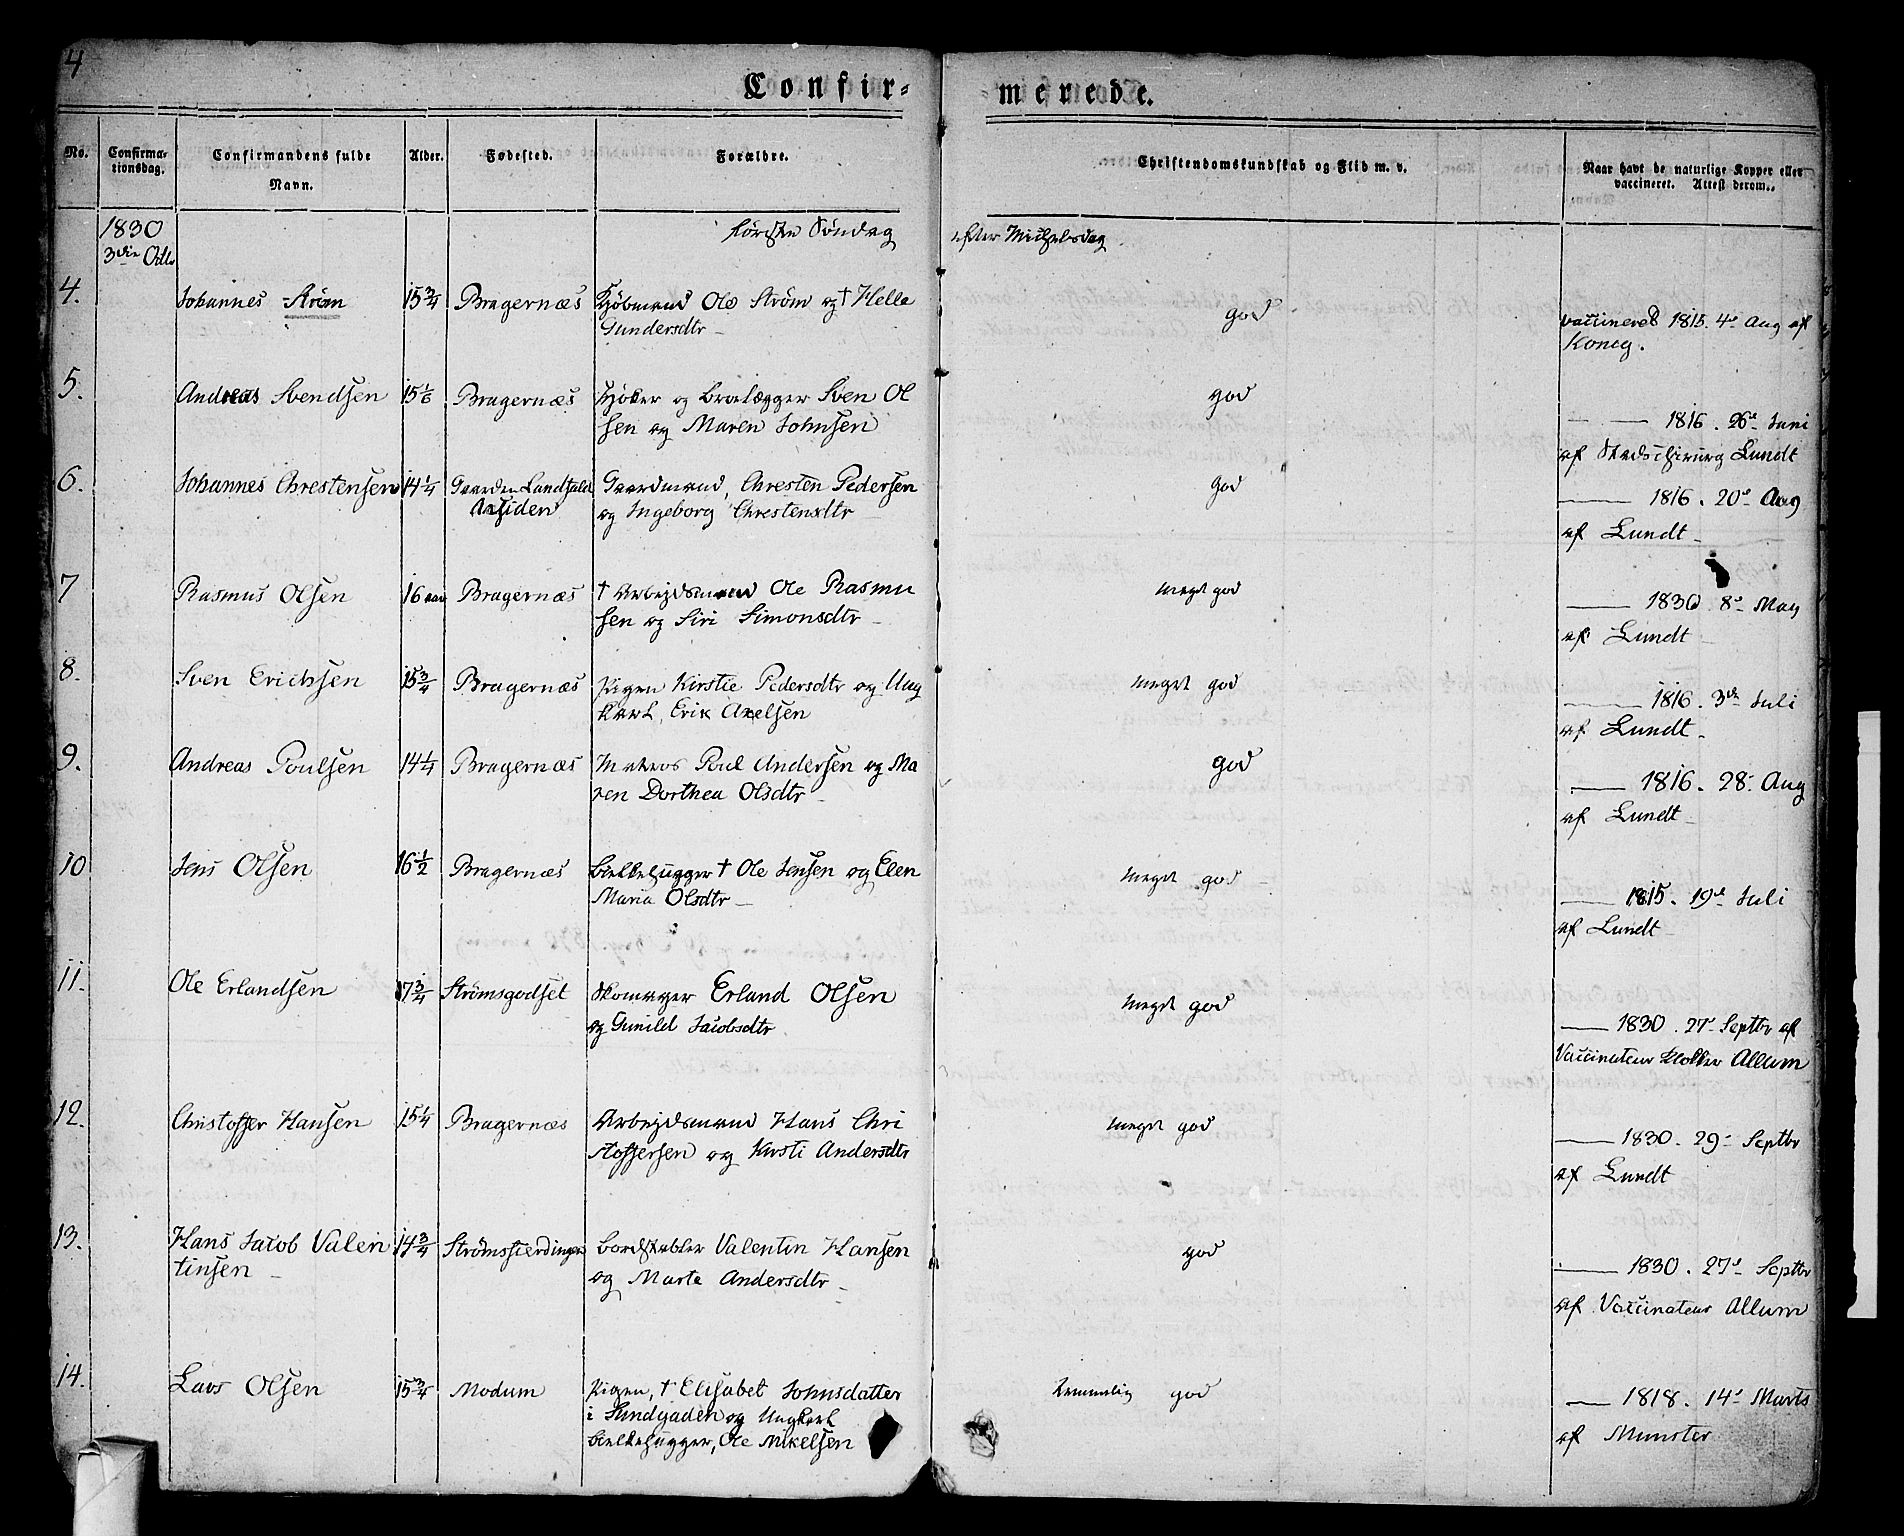 4
Confir- merede.
No. Confirmationsdag. Confirmandens fulde Navn. Alder. Fødested. Forældre. Christendomskundskab og Flid m. v. Naar havt de naturlige Kopper eller vaccineret. Attest derom.
1830 første Søndag efter Michelsdag
3die Octbr
4. Johannes Strøm 15 3/4 Bragernæs Kjøbmand Ole Strøm og † Helle god vaccineret 1815. 4de Aug af
Gundersdtr Konig.
5. Andreas Svendsen 15 1/6 Bragernæs Svend Ol god — 1816. 26de Juni
sen og Maren Johnsen af Stadschirurg Lundt
6. Johannes Chrestensen 14 1/4 Gaarden Landfald Gaardmand, Chresten Pedersen god — 1816. 20de Aug
Aasiden og Ingeborg Chrestensdtr af Lundt
7 Rasmus Olsen 16 aar Bragernæs † Arbejdsmand Ole Rasmu meget god — 1830 8de May
sen og Siri Simonsdtr af Lundt
8. Sven Erichsen 15 3/4 Bragernæs Pigen Kirstie Pedersdtr og Ung meget god — 1816. 3de Juli
karl, Erik Axelsen af Lundt
9. Andreas Poulsen 14 1/4 Bragernæs Matros Poul Andersen og Ma god — 1816. 28. Aug
ren Dorthea Olsdtr af Lundt
10 Jens Olsen 16 1/2 Bragernæs Bielkehugger † Ole Jensen og Elen meget god — 1815. 19de Juli
Maria Olsdtr af Lundt
11. Ole Erlandsen 17 3/4 Strømsgodset Skomager Erland Olsen meget god — 1830. 27de Septbr af
og Gunild Jacobsdtr Vaccinateur Klokker Allum
12. Christoffer Hansen 15 1/4 Bragernæs Arbejdsmand Hans Chri meget god — 1830. 29de Septbr
stoffersen og Kirsti Andersdtr af Lundt
13. Hans Jacob Valen 14 3/4 Strømsfierdingen Bordstabler Valentin Hansen god — 1830. 27de Septbr
tinsen og Marte Andersdtr af Vaccinateur Allum
14. Lars Olsen 15 3/4 Modum Pigen, † Elisabet Johnsdatter temmelig god — 1818. 14de Marts
i Sundgaden og Ungkarl af Munster
Bielkehugger, Ole Mikelsen